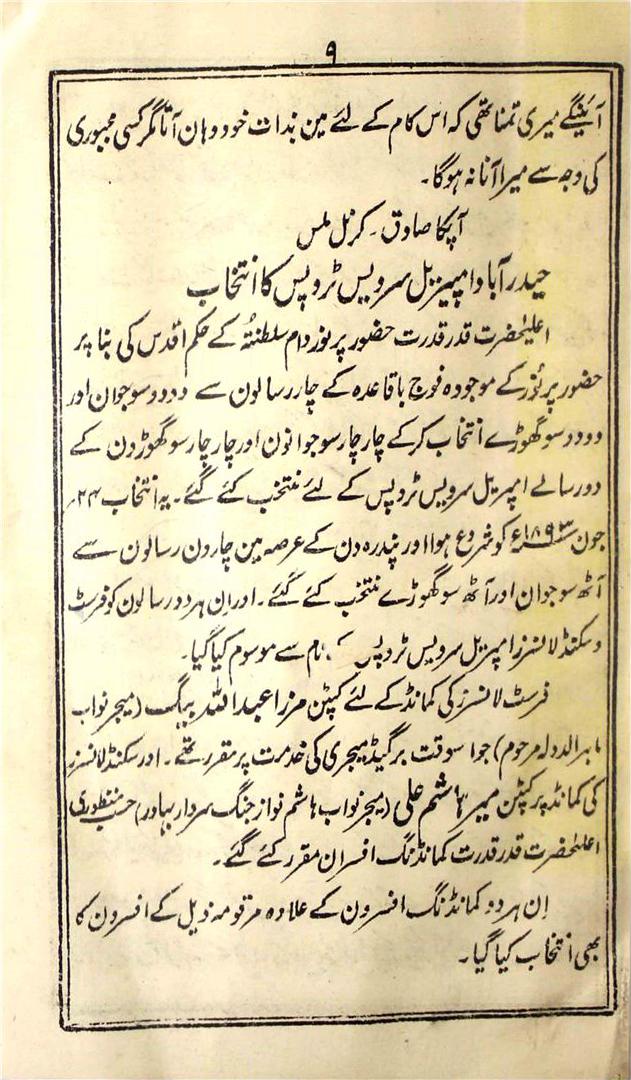 ۹
آئینگے میری تمنا تھی کہ اس کام کے لئے مین بذات خود وہان آتا مگر کسی مجبوری
کی وجہ سے میرا آنا نہ ہوگا۔
آپکا صادق۔ کرنل ملس
حیدرآباد امپیریل سرویس ٹروپس کا انتخاب
اعلیٰحضرت قدر قدرت حضور پر نور دام سلطنتہٗ کے حکم اقدس کی بنا پر
حضور پر نُور کے موجودہ فوج باقاعدہ کے چار رسالون سے دو دو سو جوان اور
دو دو سو گھوڑے انتخاب کرکے چار چار سو جوانون اور چار چار سو گھوڑون کے
دو رسالے امپریل سرویس ٹروپس کے لئے منتخب کئے گئے۔ یہ انتخاب ۲۴؍
جون ۱۸۹۳ء کو شروع ہوا اور پندرہ دن کے عرصہ مین چارون رسالون سے
آٹھ سو جوان اور آٹھ سو گھوڑے منتخب کئے گئے۔ اور اِن ہر دو رسالون کو فرسٹ
و سکنڈ لانسرز امپریل سرویس ٹروپس کے نام سے موسوم کیا گیا۔
فرسٹ لانسرز کی کمانڈ کے لئے کپٹن مرزا عبداللہ بیگ (میجر نواب
ماہر الدولہ مرحوم) جو اسوقت برگیڈ میجری کی خدمت پر مقرر تھے۔ اور سکنڈ لانسرز
کی کمانڈ پر کپٹن میر ہاشم علی (میجر نواب ہاشم نواز جنگ سردار بہادر) حسب منظوری
اعلیٰحضرت قدر قدرت کمانڈنگ افسران مقرر کئے گئے۔
اِن ہر دو کمانڈنگ افسرون کے علاوہ مرقومہ ذیل کے افسرون کا
بھی انتخاب کیا گیا۔